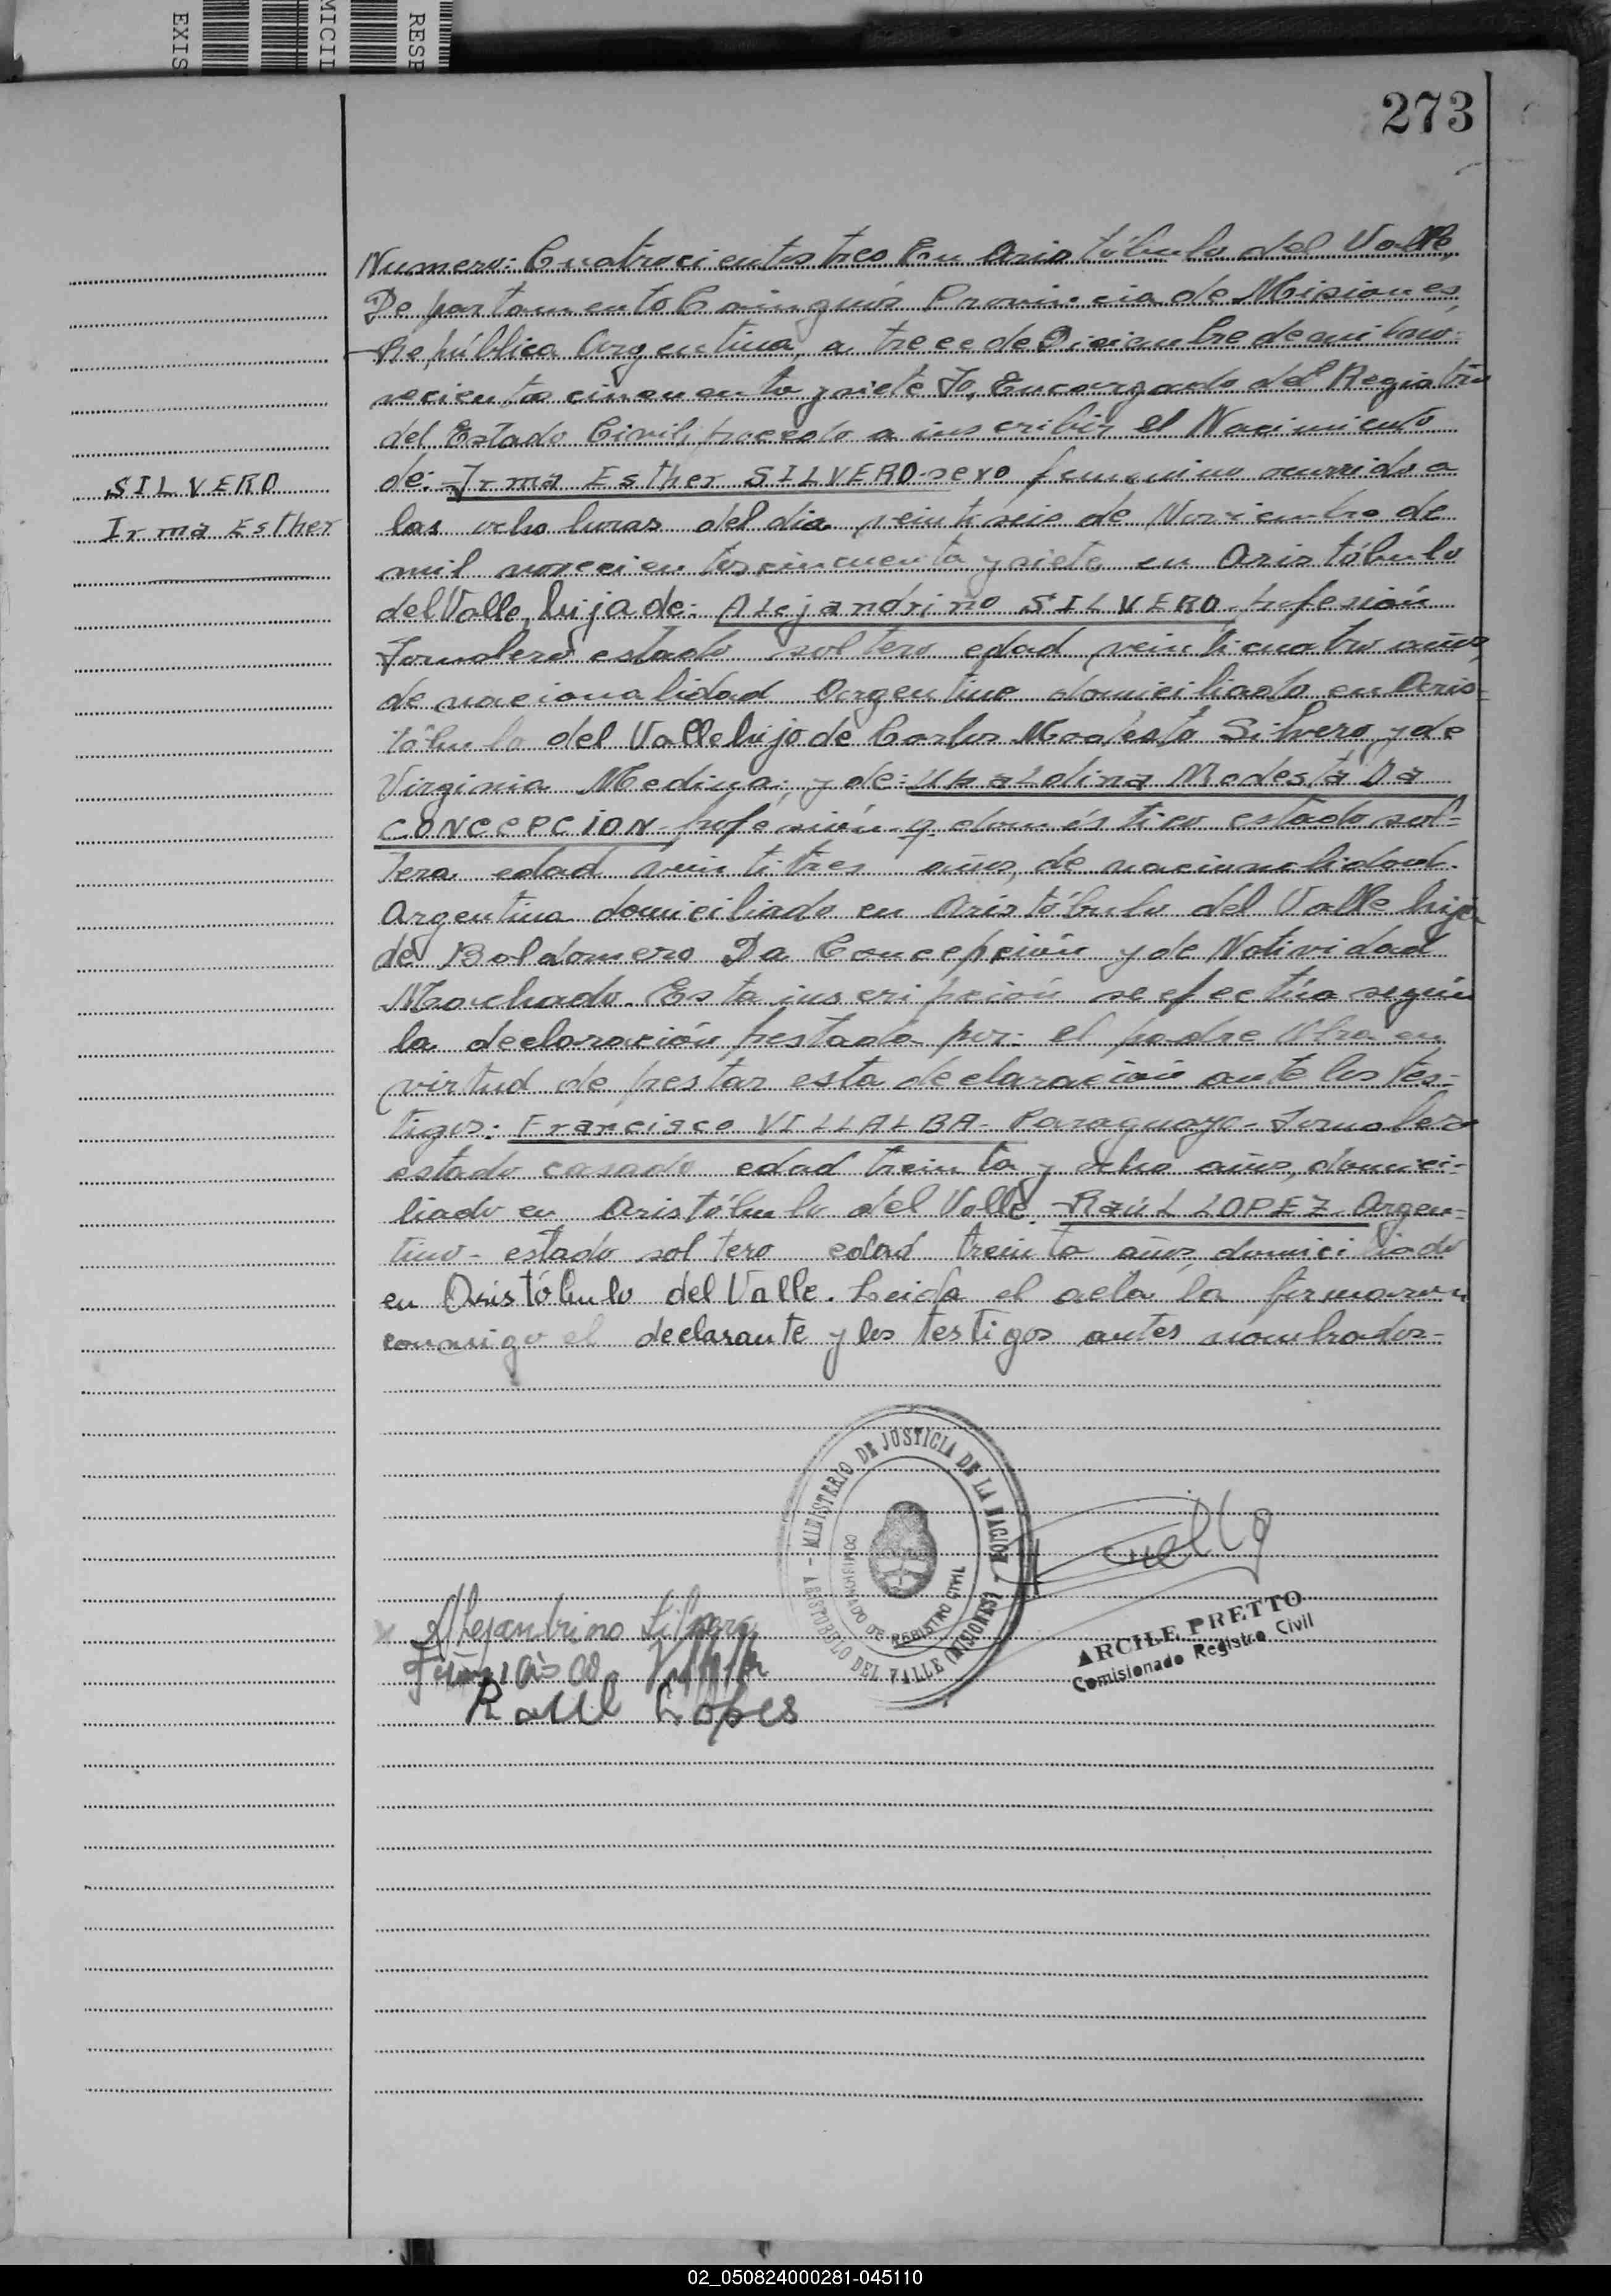 EXIS
MICIL
RESP
273
Numero: Cuatrocientos tres En Aristóbulo del Valle,
Departamento Cainguás Provincia de Misiones,
República Argentina, a trece de Diciembre de mil nov-
vecientos cincuenta y siete Yo, Encargado del Registro
del Estado Civil, procedo a inscribir el Nacimiento
SILVERO
de: Irma Esther SILVERO sexo femenino ocurrido a
Irma Esther
las ocho horas del dia veintiseis de Noviembre de
mil novecientos cincuenta y siete en Aristóbulo
del Valle, hija de: Alejandrino SILVERO profesión
Jornalero estado soltero edad veinticuatro años,
de nacionalidad Argentino domiciliado en Aris-
tóbulo del Valle hijo de Carlos Modesto Silvero y de
Virginia Medina; y de: Modesta Da
CONCEPCION profesión q. doméstico estado sol-
tera edad veintitres años, de nacionalidad
Argentina domiciliado en Aristóbulo del Valle hija
de Baldomero Da Concepción y de Natividad
Machado. Esta inscripción se efectúa según
la declaración prestada por: el padre Obra en
virtud de prestar esta declaración ante los tes-
tigos: Francisco VILLALBA - Paraguayo - Jornalero
estado casado edad treinta y ocho años, domici-
liado en Aristóbulo del Valle. Raúl LOPEZ Argen-
tino - estado soltero edad treinta años domiciliado
en Aristóbulo del Valle. Leida el acta la firmaron
conmigo el declarante y los testigos antes nombrados-
MINISTERIO DE JUSTICIA DE LA NACION
COMISARIADO DE REGISTRO CIVIL
ARISTOBULO DEL VALLE (MISIONES)
Alejandrino Silvero
Francisco
Raul Lopes
ARCILE PRETTO
Comisionado Registro Civil
02_050824000281-045110